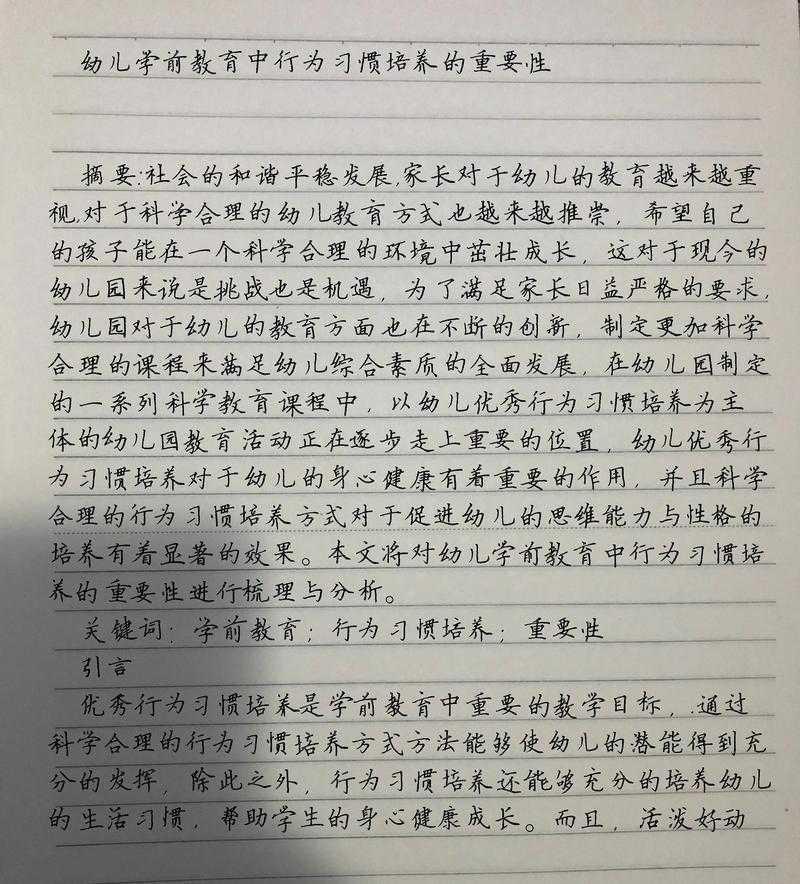 幼儿学前教育中行为习惯培养的重要性
摘要:社会的和谐平稳发展,家长对于幼儿的教育越来越重
视,对于科学合理的幼儿教育方式也越来越推崇，希望自己
的孩子能在一个科学合理的环境中茁壮成长，这对于现今的
幼儿园来说是挑战也是机遇，为了满足家长日益严格的要求，
幼儿园对于幼儿的教育方面也在不断的创新，制定更加科学
合理的课程来满足幼儿综合素质的全面发展，在幼儿园制定
的一系列科学教育课程中，以幼儿优秀行为习惯培养为主
体的幼儿园教育活动正在逐步走上重要的位置，幼儿优秀行
为习惯培养对于幼儿的身心健康有着重要的作用，并且科学
合理的行为习惯培养方式对于促进幼儿的思维能力与性格的
培养有着显著的效果。本文将对幼儿学前教育中行为习惯培
养的重要性进行梳理与分析。
关键词：学前教育；行为习惯培养；重要性
引言
优秀行为习惯培养是学前教育中重要的教学目标，通过
科学合理的行为习惯培养方式方法能够使幼儿的潜能得到充
分的发挥，除此之外，行为习惯培养还能够充分的培养幼儿
的生活习惯，帮助学生的身心健康成长。而且，活泼好动